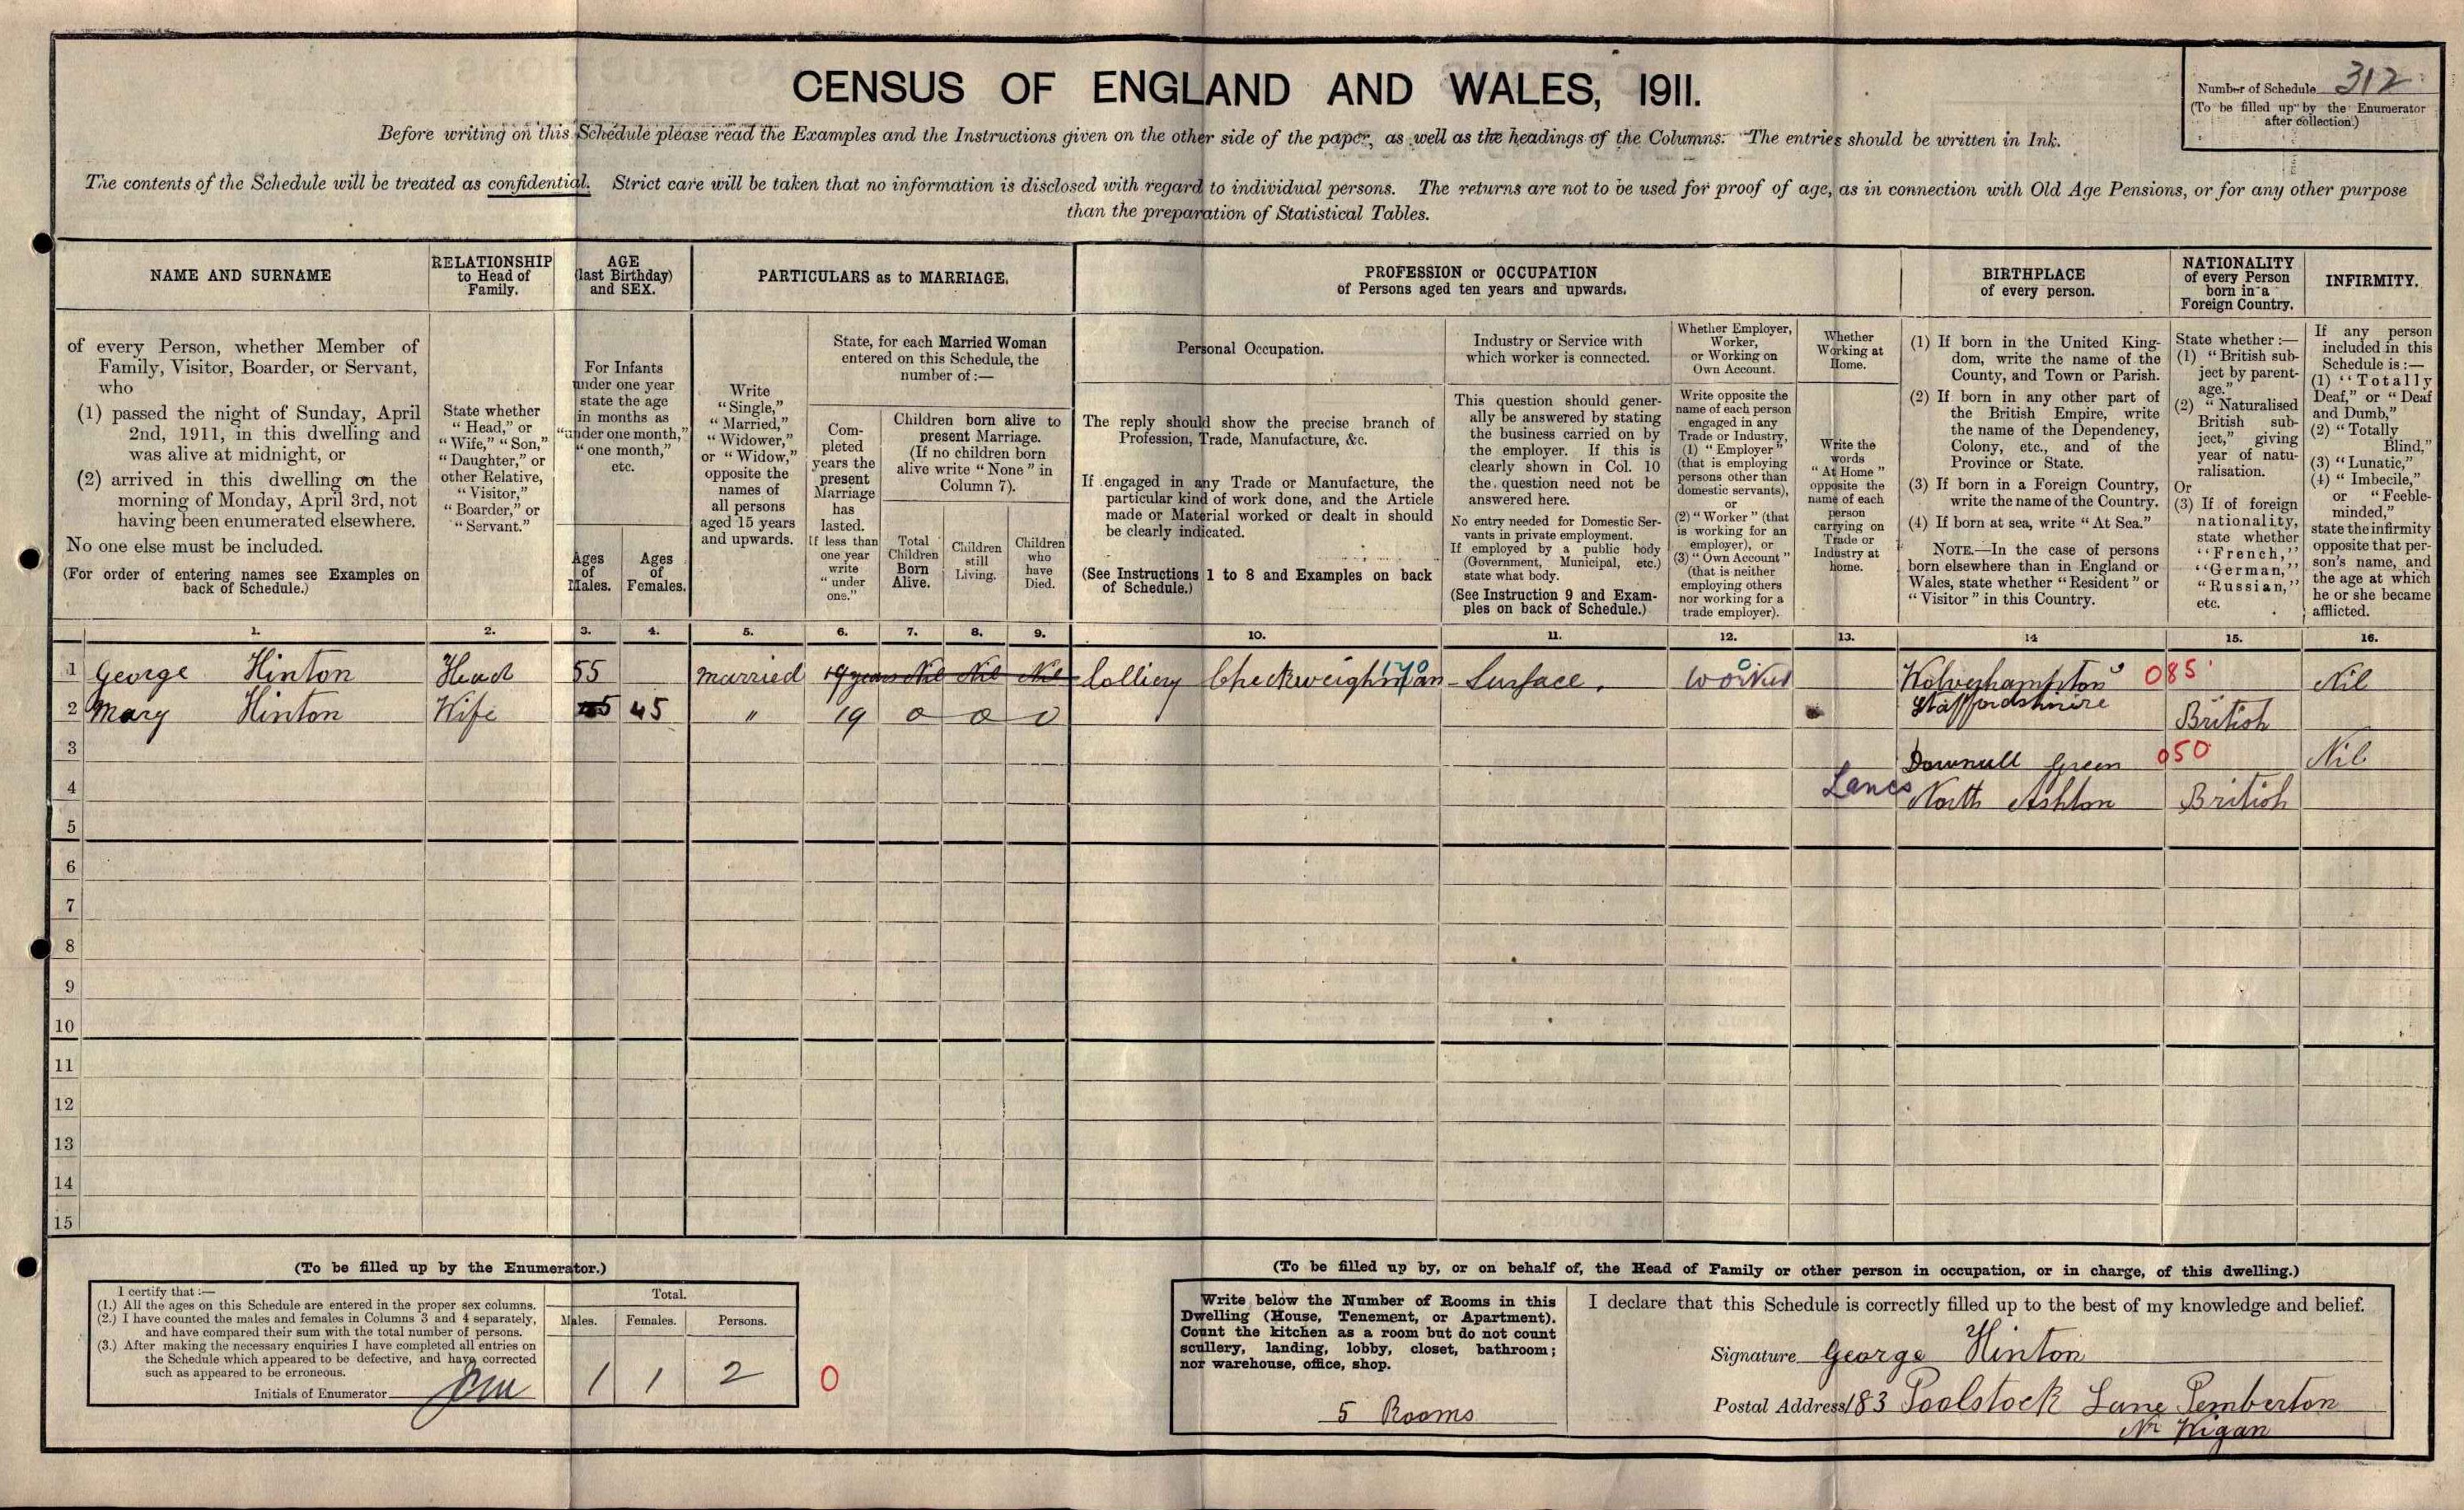 CENSUS OF ENGLAND AND WALES, 1911.
Number of Schedule 312
(To be filled up by the Enumerator
after collection.)
Before writing on this Schedule please read the Examples and the Instructions given on the other side of the paper, as well as the headings of the Columns. The entries should be written in Ink.
The contents of the Schedule will be treated as confidential. Strict care will be taken that no information is disclosed with regard to individual persons. The returns are not to be used for proof of age, as in connection with Old Age Pensions, or for any other purpose
than the preparation of Statistical Tables.
NAME AND SURNAME
of every Person, whether Member of
Family, Visitor, Boarder, or Servant,
who
(1) passed the night of Sunday, April
2nd, 1911, in this dwelling and
was alive at midnight, or
(2) arrived in this dwelling on the
morning of Monday, April 3rd, not
having been enumerated elsewhere.
No one else must be included.
(For order of entering names see Examples on
back of Schedule.)
RELATIONSHIP
to Head of
Family.
State whether
"Head," or
"Wife," "Son,"
"Daughter," or
other Relative,
"Visitor,"
"Boarder," or
"Servant."
AGE
(last Birthday)
and SEX.
For Infants
under one year
state the age
in months as
"under one month,"
"one month,"
etc.
Ages
of
Males.
Ages
of
Females.
PARTICULARS as to MARRIAGE.
Write
"Single,"
"Married,"
"Widower,"
or "Widow,"
opposite the
names of
all persons
aged 15 years
and upwards.
State, for each Married Woman
entered on this Schedule, the
number of:—
Com-
pleted
years the
present
Marriage
has
lasted.
If less than
one year
write
"under
one."
Children born alive to
present Marriage.
(If no children born
alive write "None" in
Column 7).
Total
Children
Born
Alive.
Children
still
Living.
Children
who
have
Died.
PROFESSION or OCCUPATION
of Persons aged ten years and upwards.
Personal Occupation.
The reply should show the precise branch of
Profession, Trade, Manufacture, &c.
If engaged in any Trade or Manufacture, the
particular kind of work done, and the Article
made or Material worked or dealt in should
be clearly indicated.
(See Instructions 1 to 8 and Examples on back
of Schedule.)
Industry or Service with
which worker is connected.
This question should gener-
ally be answered by stating
the business carried on by
the employer. If this is
clearly shown in Col. 10
the question need not be
answered here.
No entry needed for Domestic Ser-
vants in private employment.
If employed by a public body
(Government, Municipal, etc.)
state what body.
(See Instruction 9 and Exam-
ples on back of Schedule.)
Whether Employer,
Worker,
or Working on
Own Account.
Write opposite the
name of each person
engaged in any
Trade or Industry,
(1) "Employer"
(that is employing
persons other than
domestic servants),
or
(2) "Worker" (that
is working for an
employer), or
(3) "Own Account"
(that is neither
employing others
nor working for a
trade employer).
Whether
Working at
Home.
Write the
words
"At Home"
opposite the
name of each
person
carrying on
Trade or
Industry at
home.
BIRTHPLACE
of every person.
(1) If born in the United King-
dom, write the name of the
County, and Town or Parish.
(2) If born in any other part of
the British Empire, write
the name of the Dependency,
Colony, etc., and of the
Province or State.
(3) If born in a Foreign Country,
write the name of the Country.
(4) If born at sea, write "At Sea."
NOTE.—In the case of persons
born elsewhere than in England or
Wales, state whether "Resident" or
"Visitor" in this Country.
NATIONALITY
of every Person
born in a
Foreign Country.
State whether:—
(1) "British sub-
ject by parent-
age."
(2) "Naturalised
British sub-
ject," giving
year of natu-
ralisation.
Or
(3) If of foreign
nationality,
state whether
"French,"
"German,"
"Russian,"
etc.
INFIRMITY.
If any person
included in this
Schedule is:—
(1) "Totally
Deaf," or "Deaf
and Dumb,"
(2) "Totally
Blind,"
(3) "Lunatic,"
(4) "Imbecile,"
or "Feeble-
minded,"
state the infirmity
opposite that per-
son's name, and
the age at which
he or she became
afflicted.
1. 2. 3. 4. 5. 6. 7. 8. 9. 10. 11. 12. 13. 14 15. 16.
1 George Hinton Head 55 Married 19 years Nil Nil Nil Colliery Checkweighman 170 Surface. Worker 0 Wolverhampton 085 Nil
Staffordshire
2 Mary Hinton Wife 45 " 19 0 0 0 British
3 Downall Green 050 Nil
4 Lancs North Ashton British
5
6
7
8
9
10
11
12
13
14
15
(To be filled up by the Enumerator.)
I certify that:—
(1.) All the ages on this Schedule are entered in the proper sex columns.
(2.) I have counted the males and females in Columns 3 and 4 separately,
and have compared their sum with the total number of persons.
(3.) After making the necessary enquiries I have completed all entries on
the Schedule which appeared to be defective, and have corrected
such as appeared to be erroneous.
Initials of Enumerator
Total.
Males. Females. Persons.
1 1 2 0
(To be filled up by, or on behalf of, the Head of Family or other person in occupation, or in charge, of this dwelling.)
Write below the Number of Rooms in this
Dwelling (House, Tenement, or Apartment).
Count the kitchen as a room but do not count
scullery, landing, lobby, closet, bathroom;
nor warehouse, office, shop.
5 Rooms
I declare that this Schedule is correctly filled up to the best of my knowledge and belief.
Signature George Hinton
Postal Address 183 Poolstock Lane Pemberton
Nr Wigan